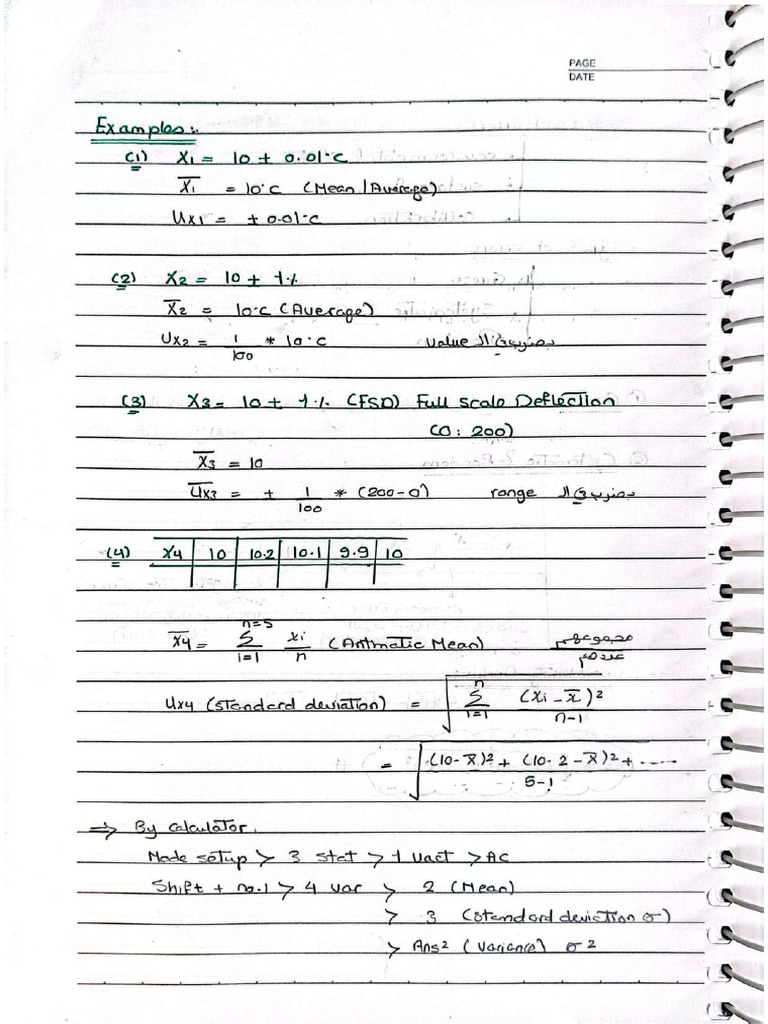 PAGE
DATE
Examples:.
(1) X1 = 10 ± 0.01°c
X̅1 = 10°c (Mean / Average)
Ux1 = ± 0.01°c
(2) X2 = 10 ± 1%
X̅2 = 10°c (Average)
Ux2 = 1/100 * 10°c بضرب في الـ value
(3) X3 = 10 ± 1% (FSD) Full Scale Deflection
(0: 200)
X̅3 = 10
U̅x3 = ± 1/100 * (200-0) بضرب في الـ range
(4) X4 | 10 | 10.2 | 10.1 | 9.9 | 10
X̅4 = n=5 Σ i=1 xi/n (Arithmatic Mean) مجموعهم / عددهم
Ux4 (standard deviation) = √ n Σ i=1 (xi - x̅)² / n-1
= √ (10-x̅)² + (10.2 - x̅)² + ..... / 5-1
⇒ By calculator.
Mode setup > 3 stat > 1 vact > AC
Shift + no.1 > 4 var > 2 (Mean)
> 3 (standard deviation σ)
> Ans² (variance) σ²